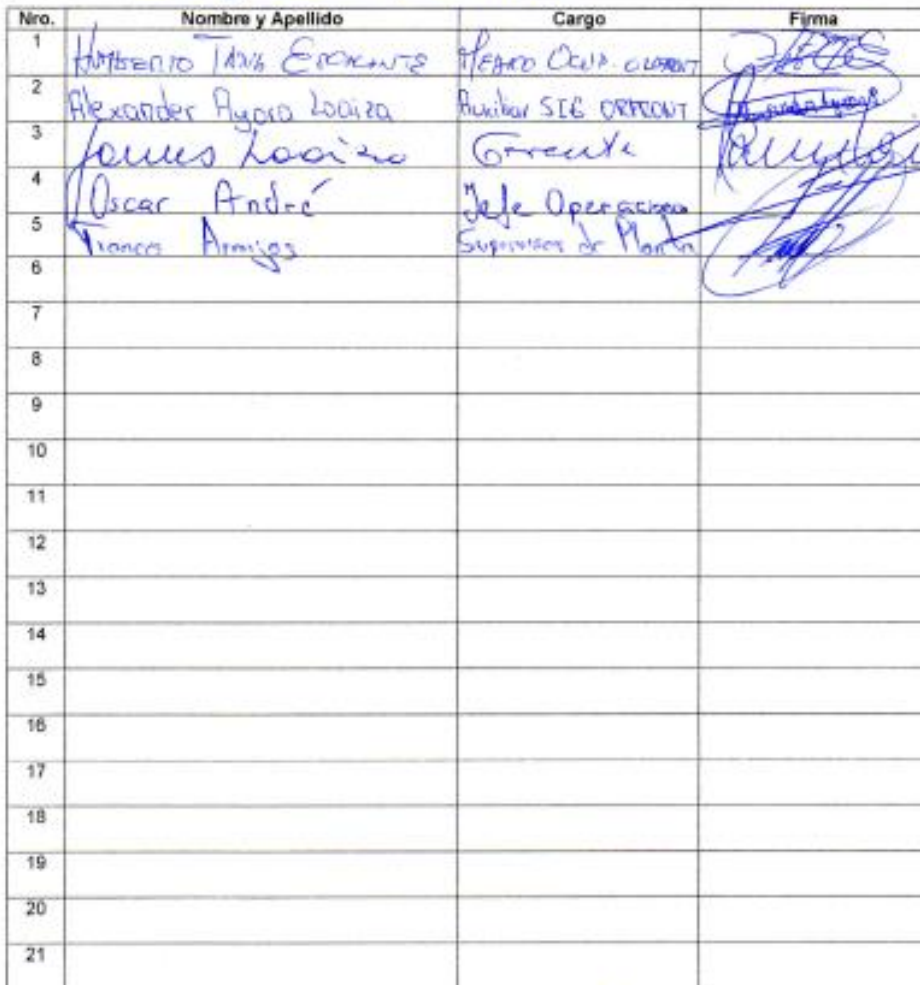 Nro. Nombre y Apellido Cargo Firma
1 Humberto
2 Alexander Ayora Loaiza Auxiliar SIG
3 James Loaiza Gerente
4 Oscar André Jefe Operaciones
5 Franco Armijos Supervisor de Planta
6
7
8
9
10
11
12
13
14
15
16
17
18
19
20
21